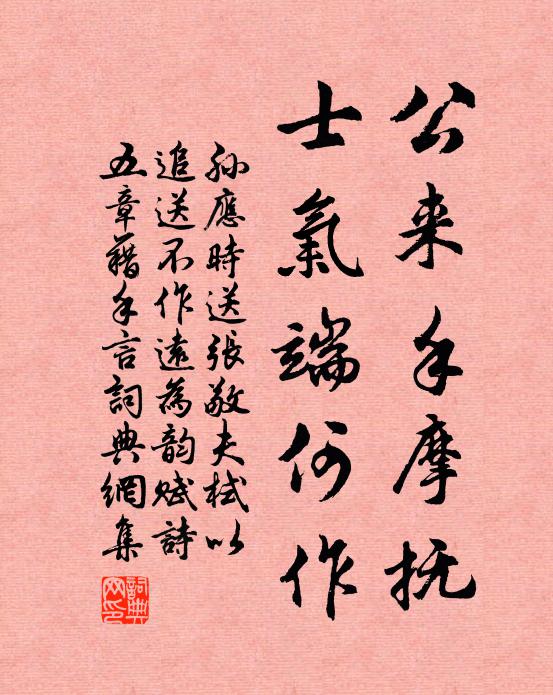 公来手摩抚
士氣端何作
孙應時送張敬夫栻以
追送不作遠為韵赋詩
五章藉手言詞典網集
詞典网印